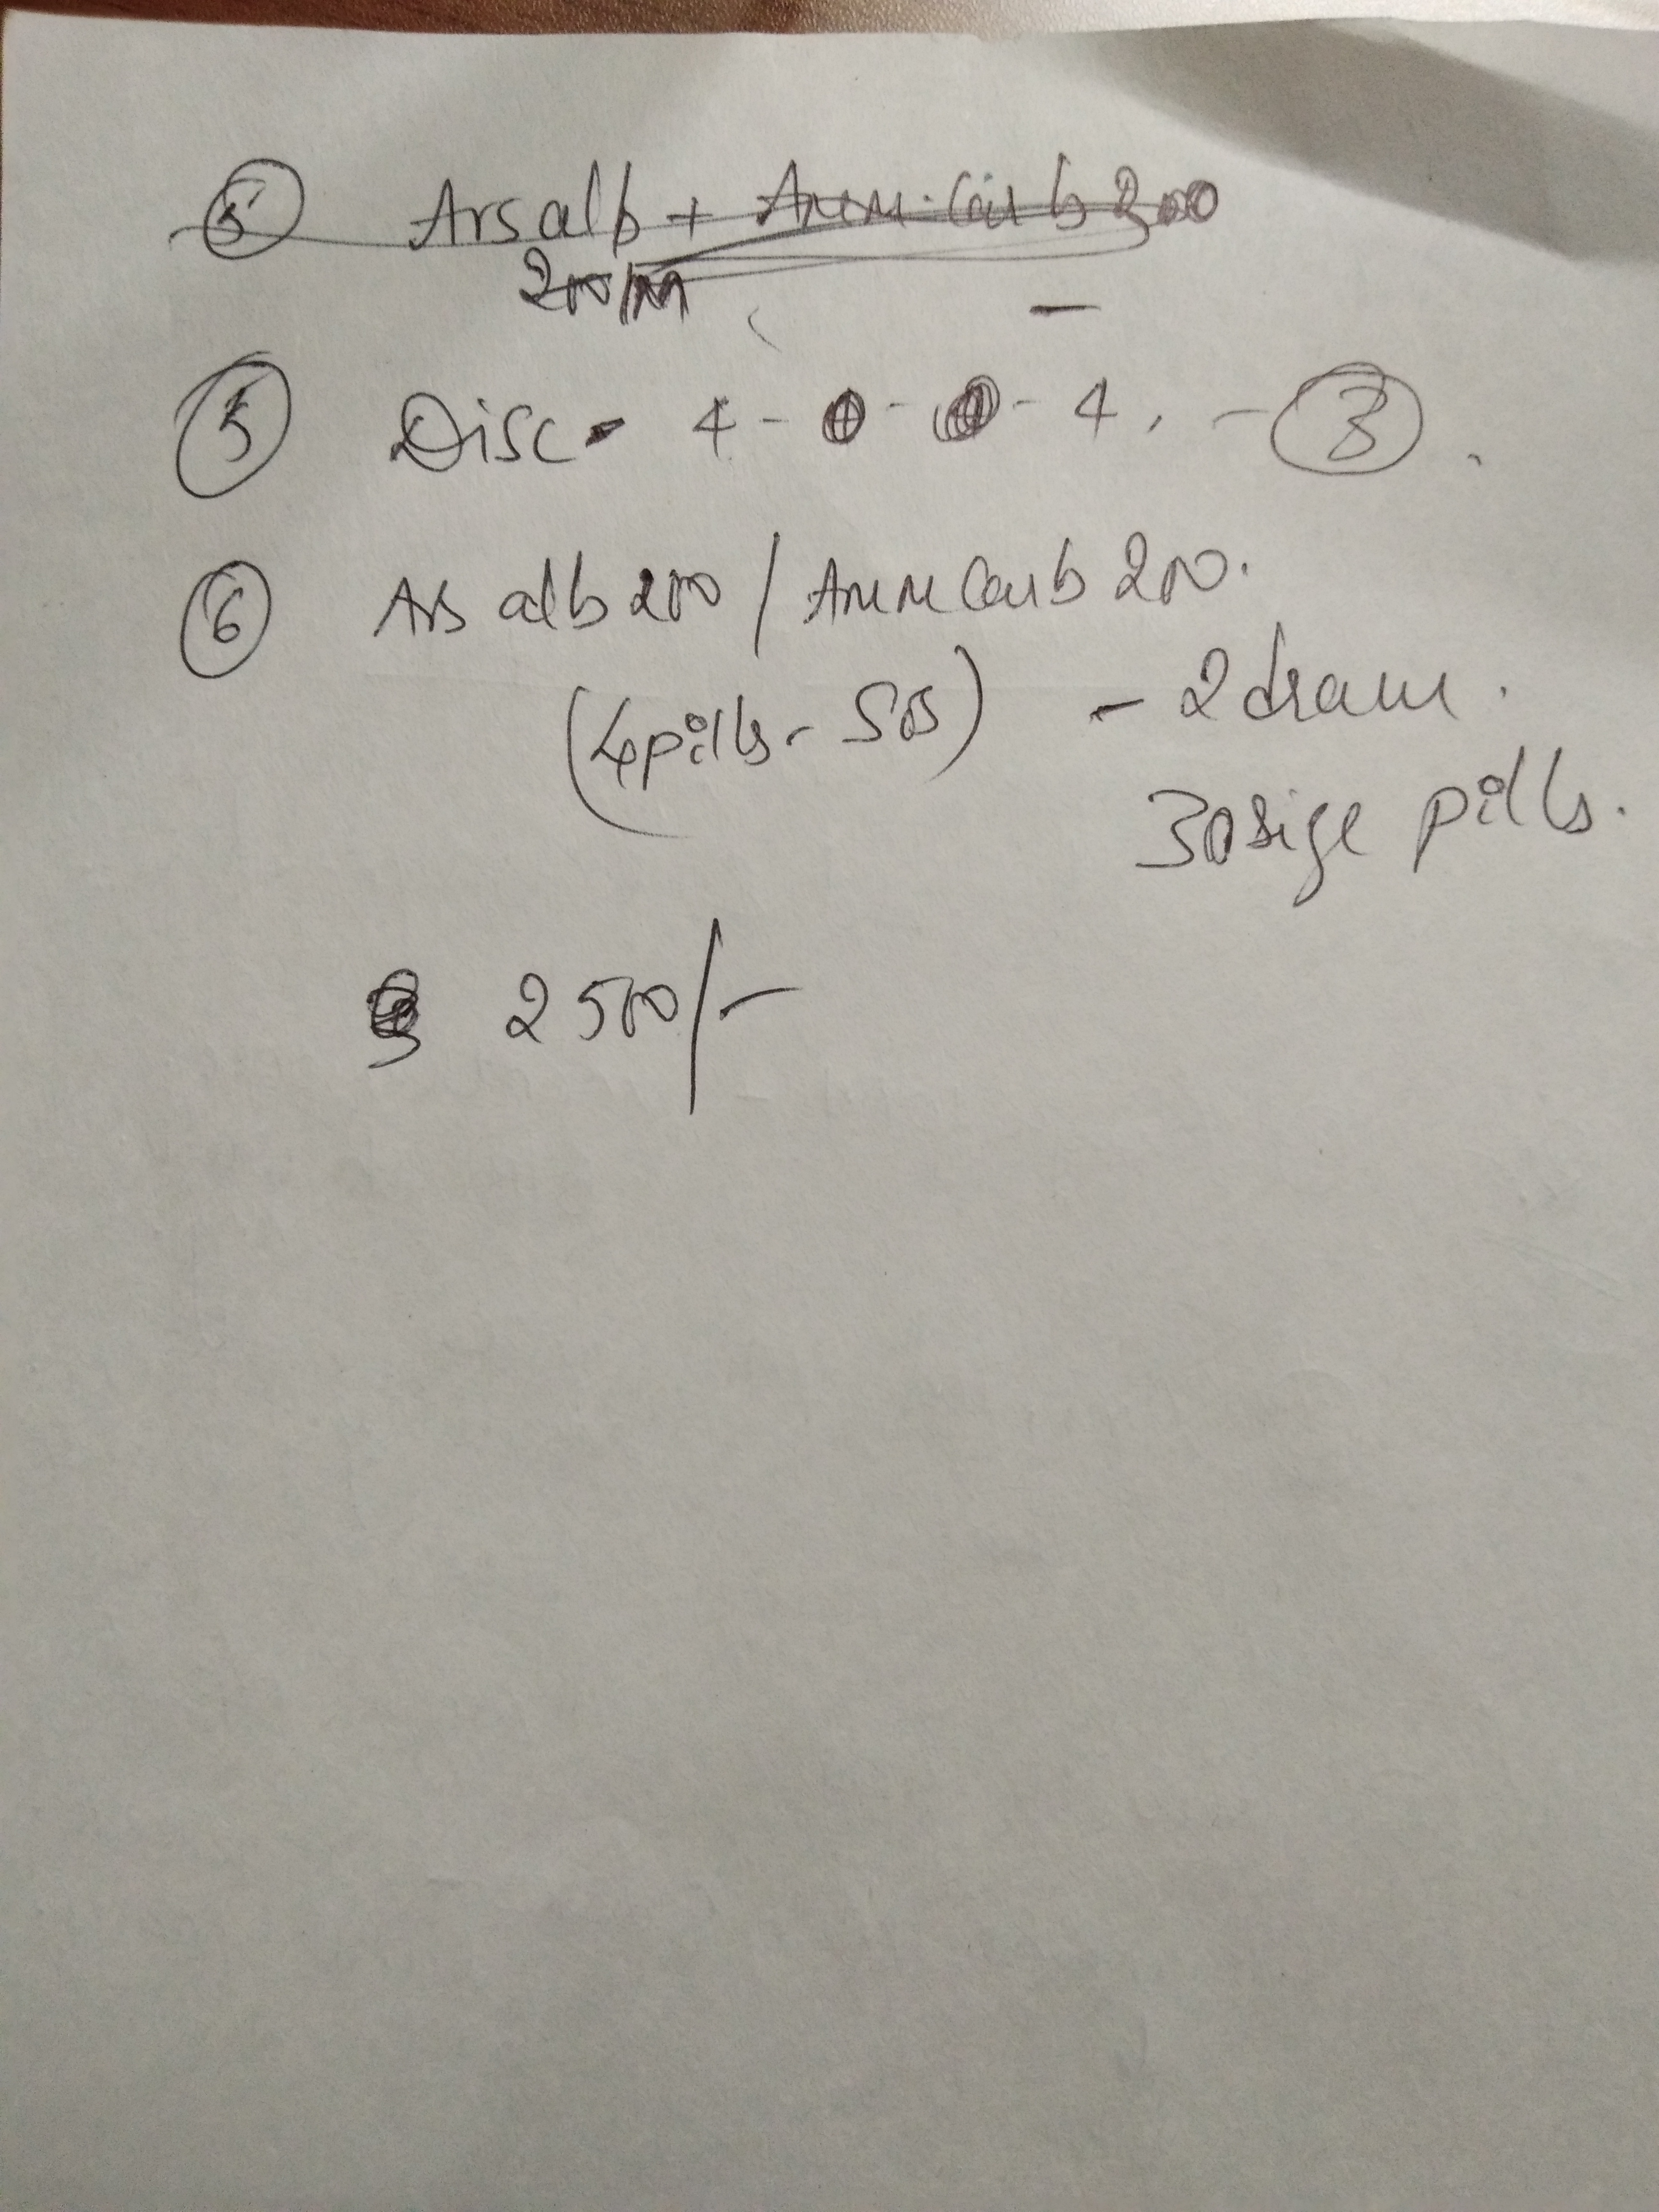 5 Ars alb + Amm. Carb 200
200/1M
5 Disc - 4 - 0 - 0 - 4. - 3.
6 Ars alb 200 / Amm Carb 200.
(4 pills - SOS) - 2 dram.
30 size pills.
2500/-